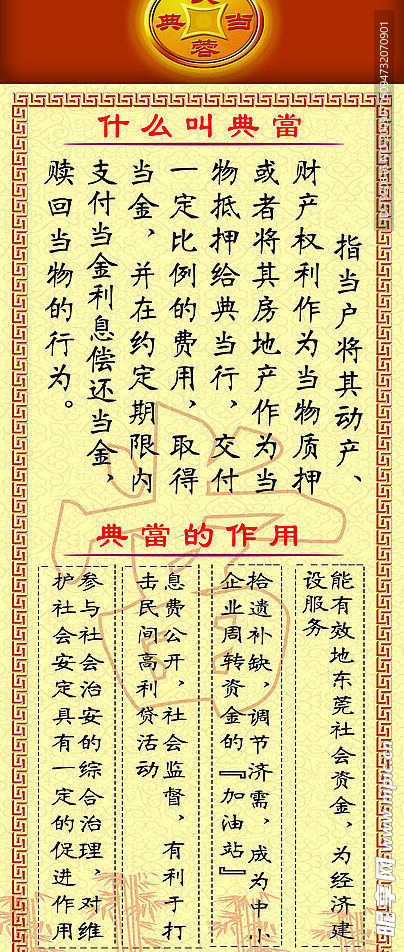 典 当
蓉
什么叫典當
指当户将其动产、
财产权利作为当物质押
或者将其房地产作为当
物抵押给典当行，交付
一定比例的费用，取得
当金，并在约定期限内
支付当金利息偿还当金，
赎回当物的行为。
當
典當的作用
能有效地东莞社会资金，为经济建
设服务
拾遗补缺，调节济需，成为中小
企业周转资金的『加油站』
息费公开，社会监督，有利于打
击民间高利贷活动
参与社会治安的综合治理，对维
护社会安定具有一定的促进作用